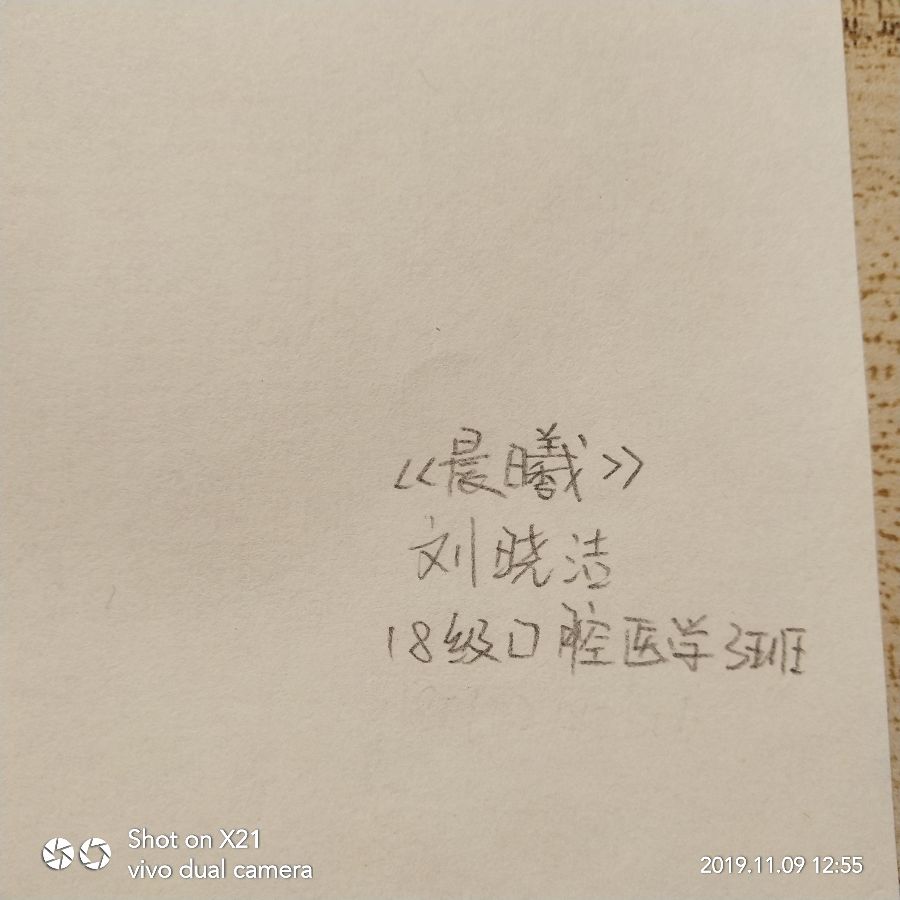 《晨曦》
刘晓洁
18级口腔医学3班
Shot on X21
vivo dual camera
2019.11.09 12:55